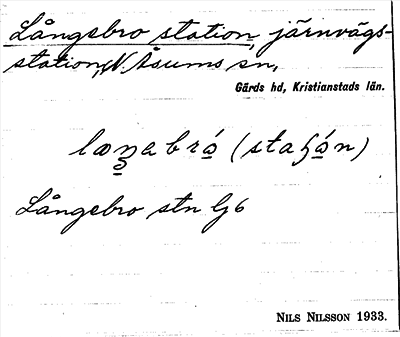 Långebro station, järnvägs-
station, N Åsums sn,
Gärds hd, Kristianstads län.
Långebro stn Gj6
NILS NILSSON 1933.